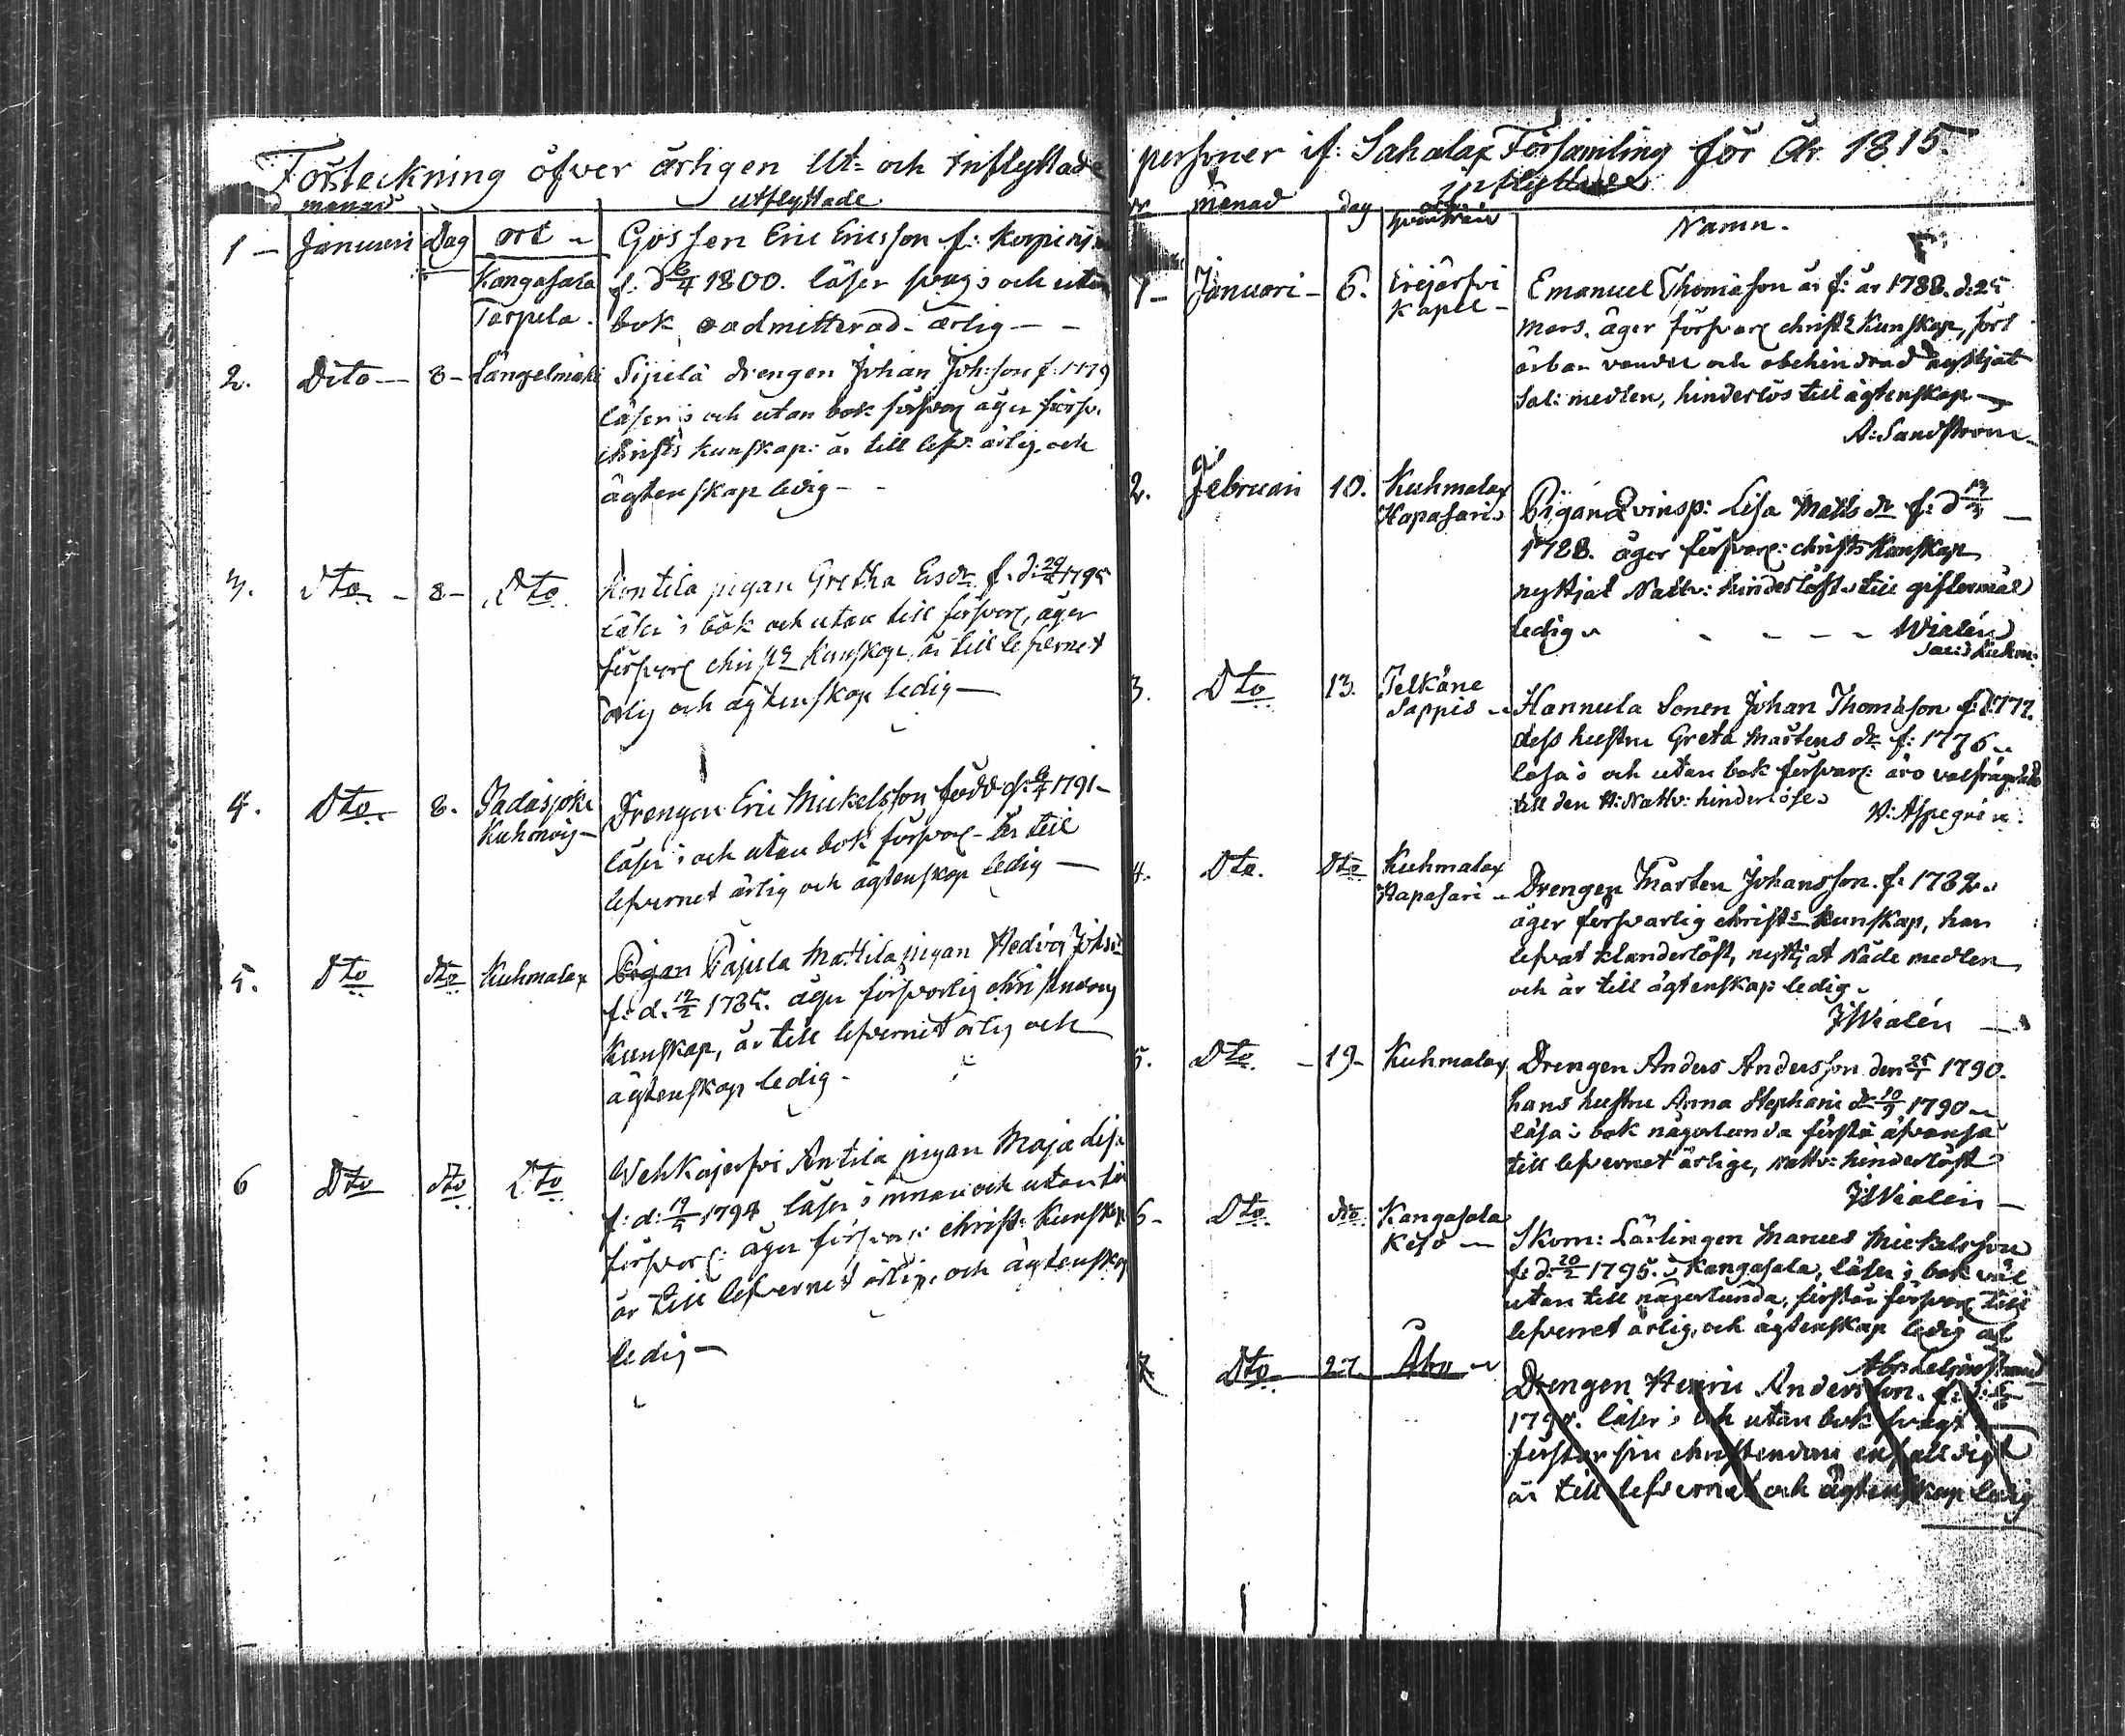 Förteckning öfver årligen Ut- och Inflyttade
månad utflyttade
1 - Januari Dag ort Gossen Eric Ericsson f:
Kangasala f: d 1800. läser svag i och utan
Tarpila. bok oadmitterad ärlig
2. Dito 8 Längelmäki Sipilä drengen Johan Joh:son f. 1779
läser i och utan bok försvarl äger försv.
christs kunskap: är till lefv: ärlig och
ägtenskap ledig
3. Dto 8 Dto Kontila pigan Gretha f. d: 29/ 1795
läser i bok och utan till försvarl, äger
försvarl christl Kunskap, är till lefvernet
ärlig och ägtenskap ledig
4. Dto 8. Padasjoki Drengen Eric Mickelsson född 1791
läser i och utan bok försvarl är till
lefvernet ärlig och ägtenskap ledig
5. Dto dto Kuhmalax Pigan Pajula Mattila pigan Hedvig
f: d. 17/2 1785. äger försvarlig
Kunskap, är till lefvernet ärlig och
ägtenskap ledig
6 Dto dto Dto Wehkajerfvi Antila pigan Maja Lisa
f: d: 1794 läser i innan och utan
försvarl: äger försvarl: christ: Kunskap
är till lefvernet ärlig, och ägtenskap
ledig
personer if: Sahalax Församling för År 1815.
Inflyttade
månad dag Namn.
1 - Januari - 6. Erejärfvi Emanuel Thomasson är f: år 1788. d: 25
Kapel - Mars. äger försvarl christl Kunskap, fört
ärbar vandel och obehindrad nyttjat
Sal: medlen, hinderlös till ägtenskap
A: Sandström
2. Februari 10. Kuhmalax
Hapasari Pigan Qvinsp: Lisa Matts dr f: d
1788. äger försvarl: christs Kunskap
nyttjat Nattv: hinderlöst till giftermål
ledig Wialén
3. Dto 13. Pelkäne
Sappis Hannula Sonen Johan Thomasson f: 177
dess hustru Greta Mårtens dr f: 1776
läsa i och utan bok försvarl: äro
till den H: Nattv: hinderlöse H: Aspegrén
4. Dto. Dto Kuhmalax
Hapasari Drengen Mårten Johansson. f: 1782
äger försvarlig christs Kunskap, han
lefvat klanderlöst, nyttjat Nåde medlen
och är till ägtenskap ledig
J Wialén
5. Dto. 19 Kuhmalax Drengen Anders Andersson den 1790.
hans hustru Anna Stephani dr 10/9 1790
läsa i bok någorlunda förstå äfvenså
till lefvernet ärlige, Nattv: hinderlöst
J: Wialén
6 Dto dto Kangasala
Skom: Lärlingen Manuel Mickelsson
f: d: 20/2 1795. i Kangasala, läser i bok väl
utan till någorlunda, förstår försvarl till
lefvernet ärlig, och ägtenskap ledig
7 Dto 27. Åbo
Drengen Henric Andersson. f: d:
179. läser i och utan bok svagt
förstår sin christendom enfalldigt
är till lefvernet och ägtenskap ledig